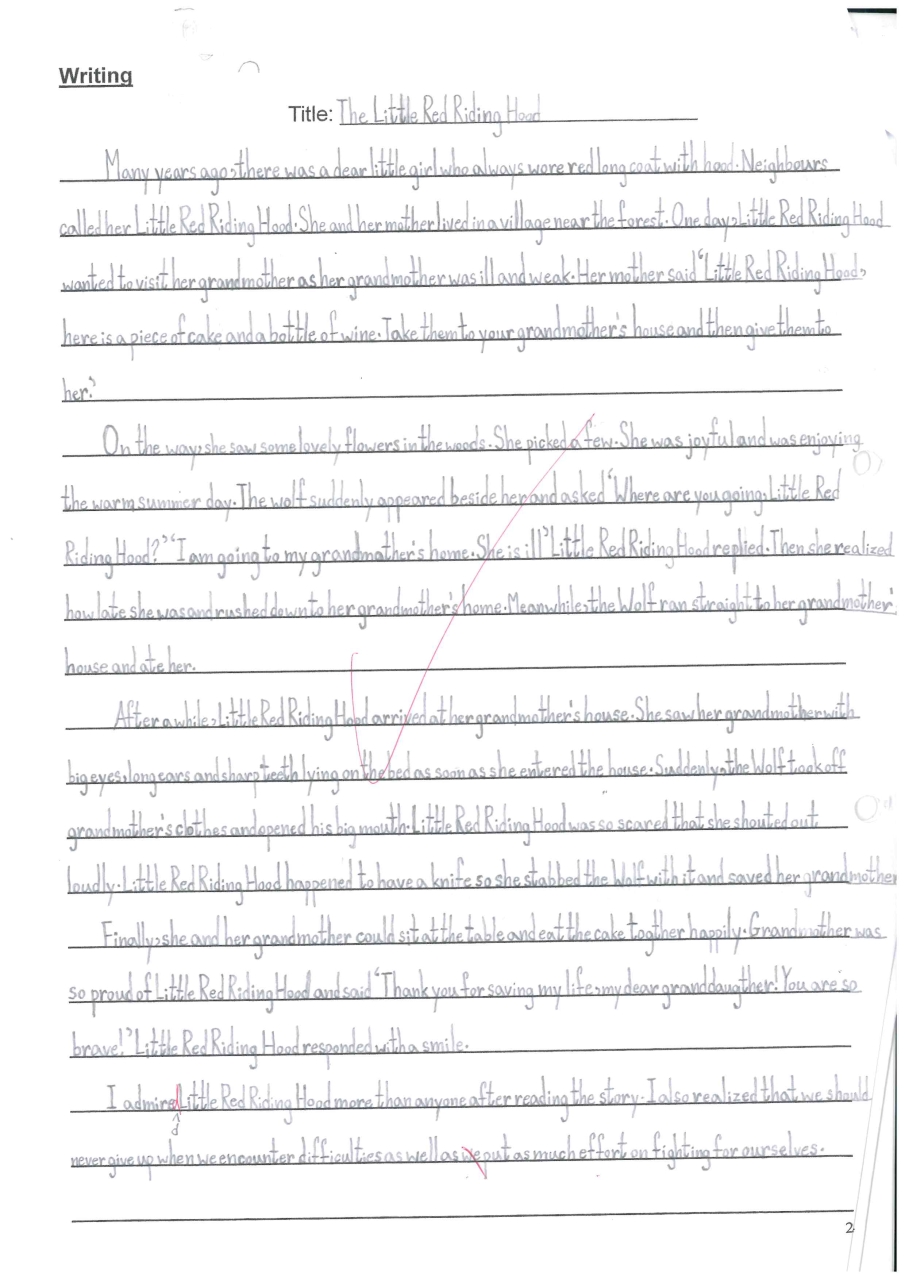 Writing
Title: The Little Red Riding Hood
Many years ago, there was a dear little girl who always wore red long coat with hood. Neighbours
called her Little Red Riding Hood. She and her mother lived in a village near the forest. One day, Little Red Riding Hood
wanted to visit her grandmother as her grandmother was ill and weak. Her mother said 'Little Red Riding Hood,
here is a piece of cake and a bottle of wine. Take them to your grandmother's house and then give them to
her.'
On the way, she saw some lovely flowers in the woods. She picked a few. She was joyful and was enjoying
the warm summer day. The wolf suddenly appeared beside her and asked 'Where are you going, Little Red
Riding Hood?' 'I am going to my grandmother's home. She is ill' Little Red Riding Hood replied. Then she realized
how late she was and rushed down to her grandmother's home. Meanwhile, the Wolf ran straight to her grandmother'
house and ate her.
After a while, Little Red Riding Hood arrived at her grandmother's house. She saw her grandmother with
big eyes, long ears and sharp teeth lying on the bed as soon as she entered the house. Suddenly, the Wolf took off
grandmother's clothes and opened his big mouth. Little Red Riding Hood was so scared that she shouted out
loudly. Little Red Riding Hood happened to have a knife so she stabbed the Wolf with it and saved her grandmother
Finally, she and her grandmother could sit at the table and eat the cake together happily. Grandmother was
so proud of Little Red Riding Hood and said 'Thank you for saving my life, my dear granddaugther! You are so
brave!' Little Red Riding Hood responded with a smile.
I admire Little Red Riding Hood more than anyone after reading the story. I also realized that we should
d
never give up when we encounter difficulties as well as we put as much effort on fighting for ourselves.
2